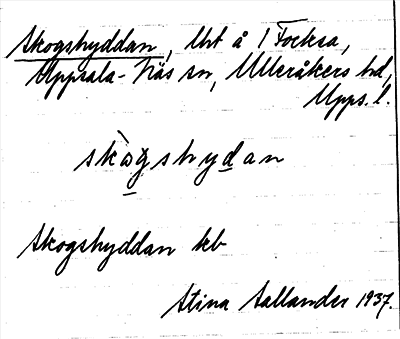 Skogshyddan, lht å 1 Focksa,
Uppsala-Näs sn, Ulleråkers hd,
Upps. l.
skògshydan
Skogshyddan kb
Stina Sallander 1937.